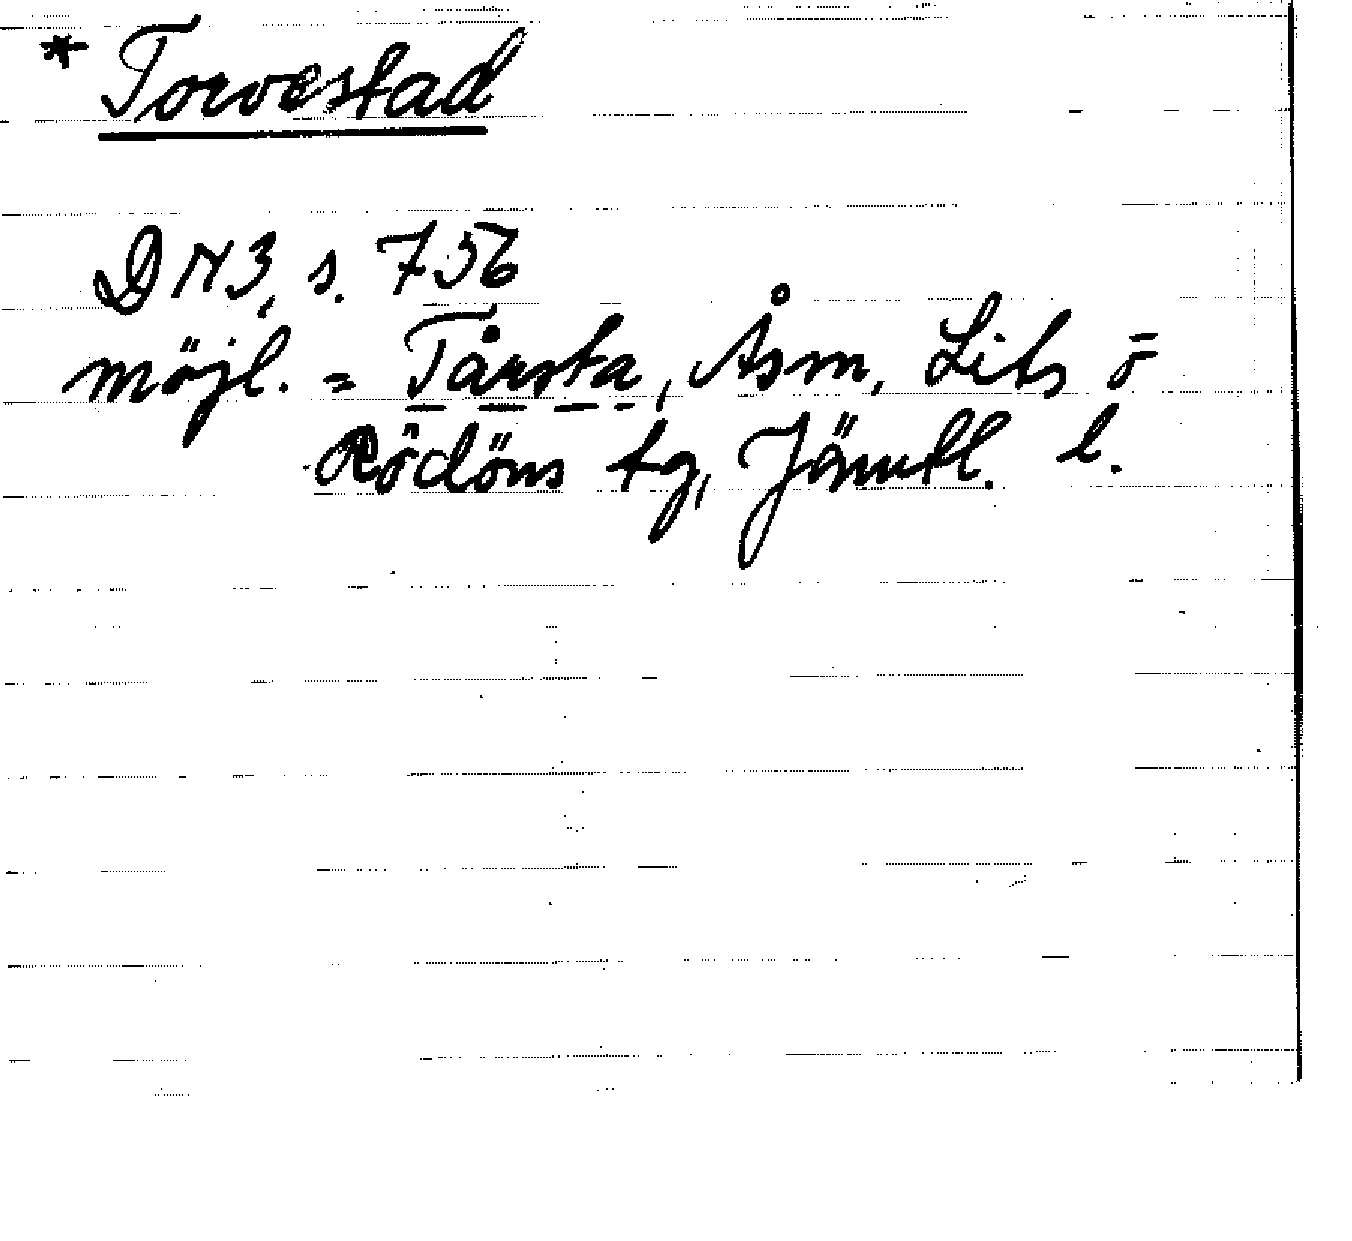 * Torvestad
DN3, s. 756
möjl. = Tårsta, Åsm, Lits ō
Rödöns tg, Jämtl. l.